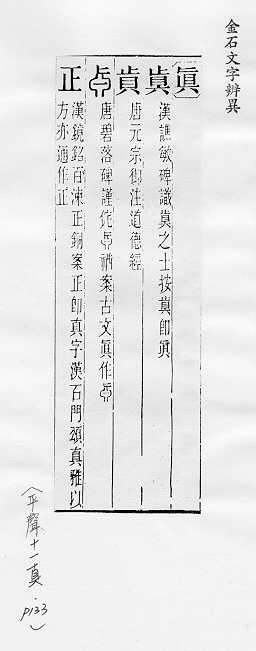 金石文字辨異
眞
漢譙敏碑識真之士按真即眞
唐元宗御注道德經
唐碧落碑謹侂𠑼猶案古文眞作𠑼
正
漢鏡銘百湅正銅案正即真字漢石門頌真雅以
方亦通作正
（平聲十一真．P133）